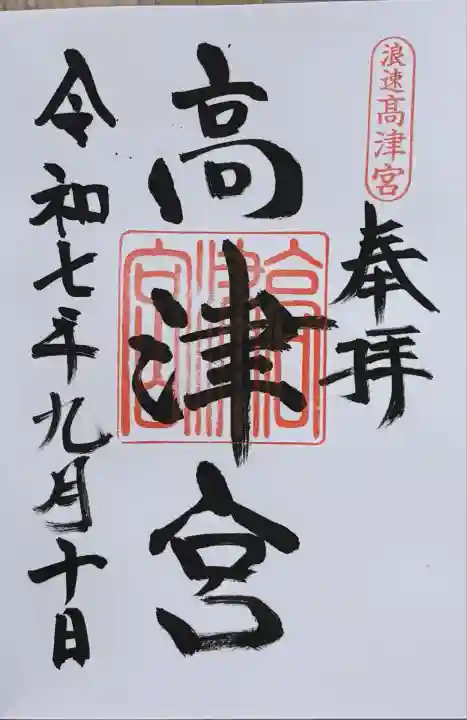 浪速高津宮
奉拝
高津宮
高津宮
令和七年九月十日